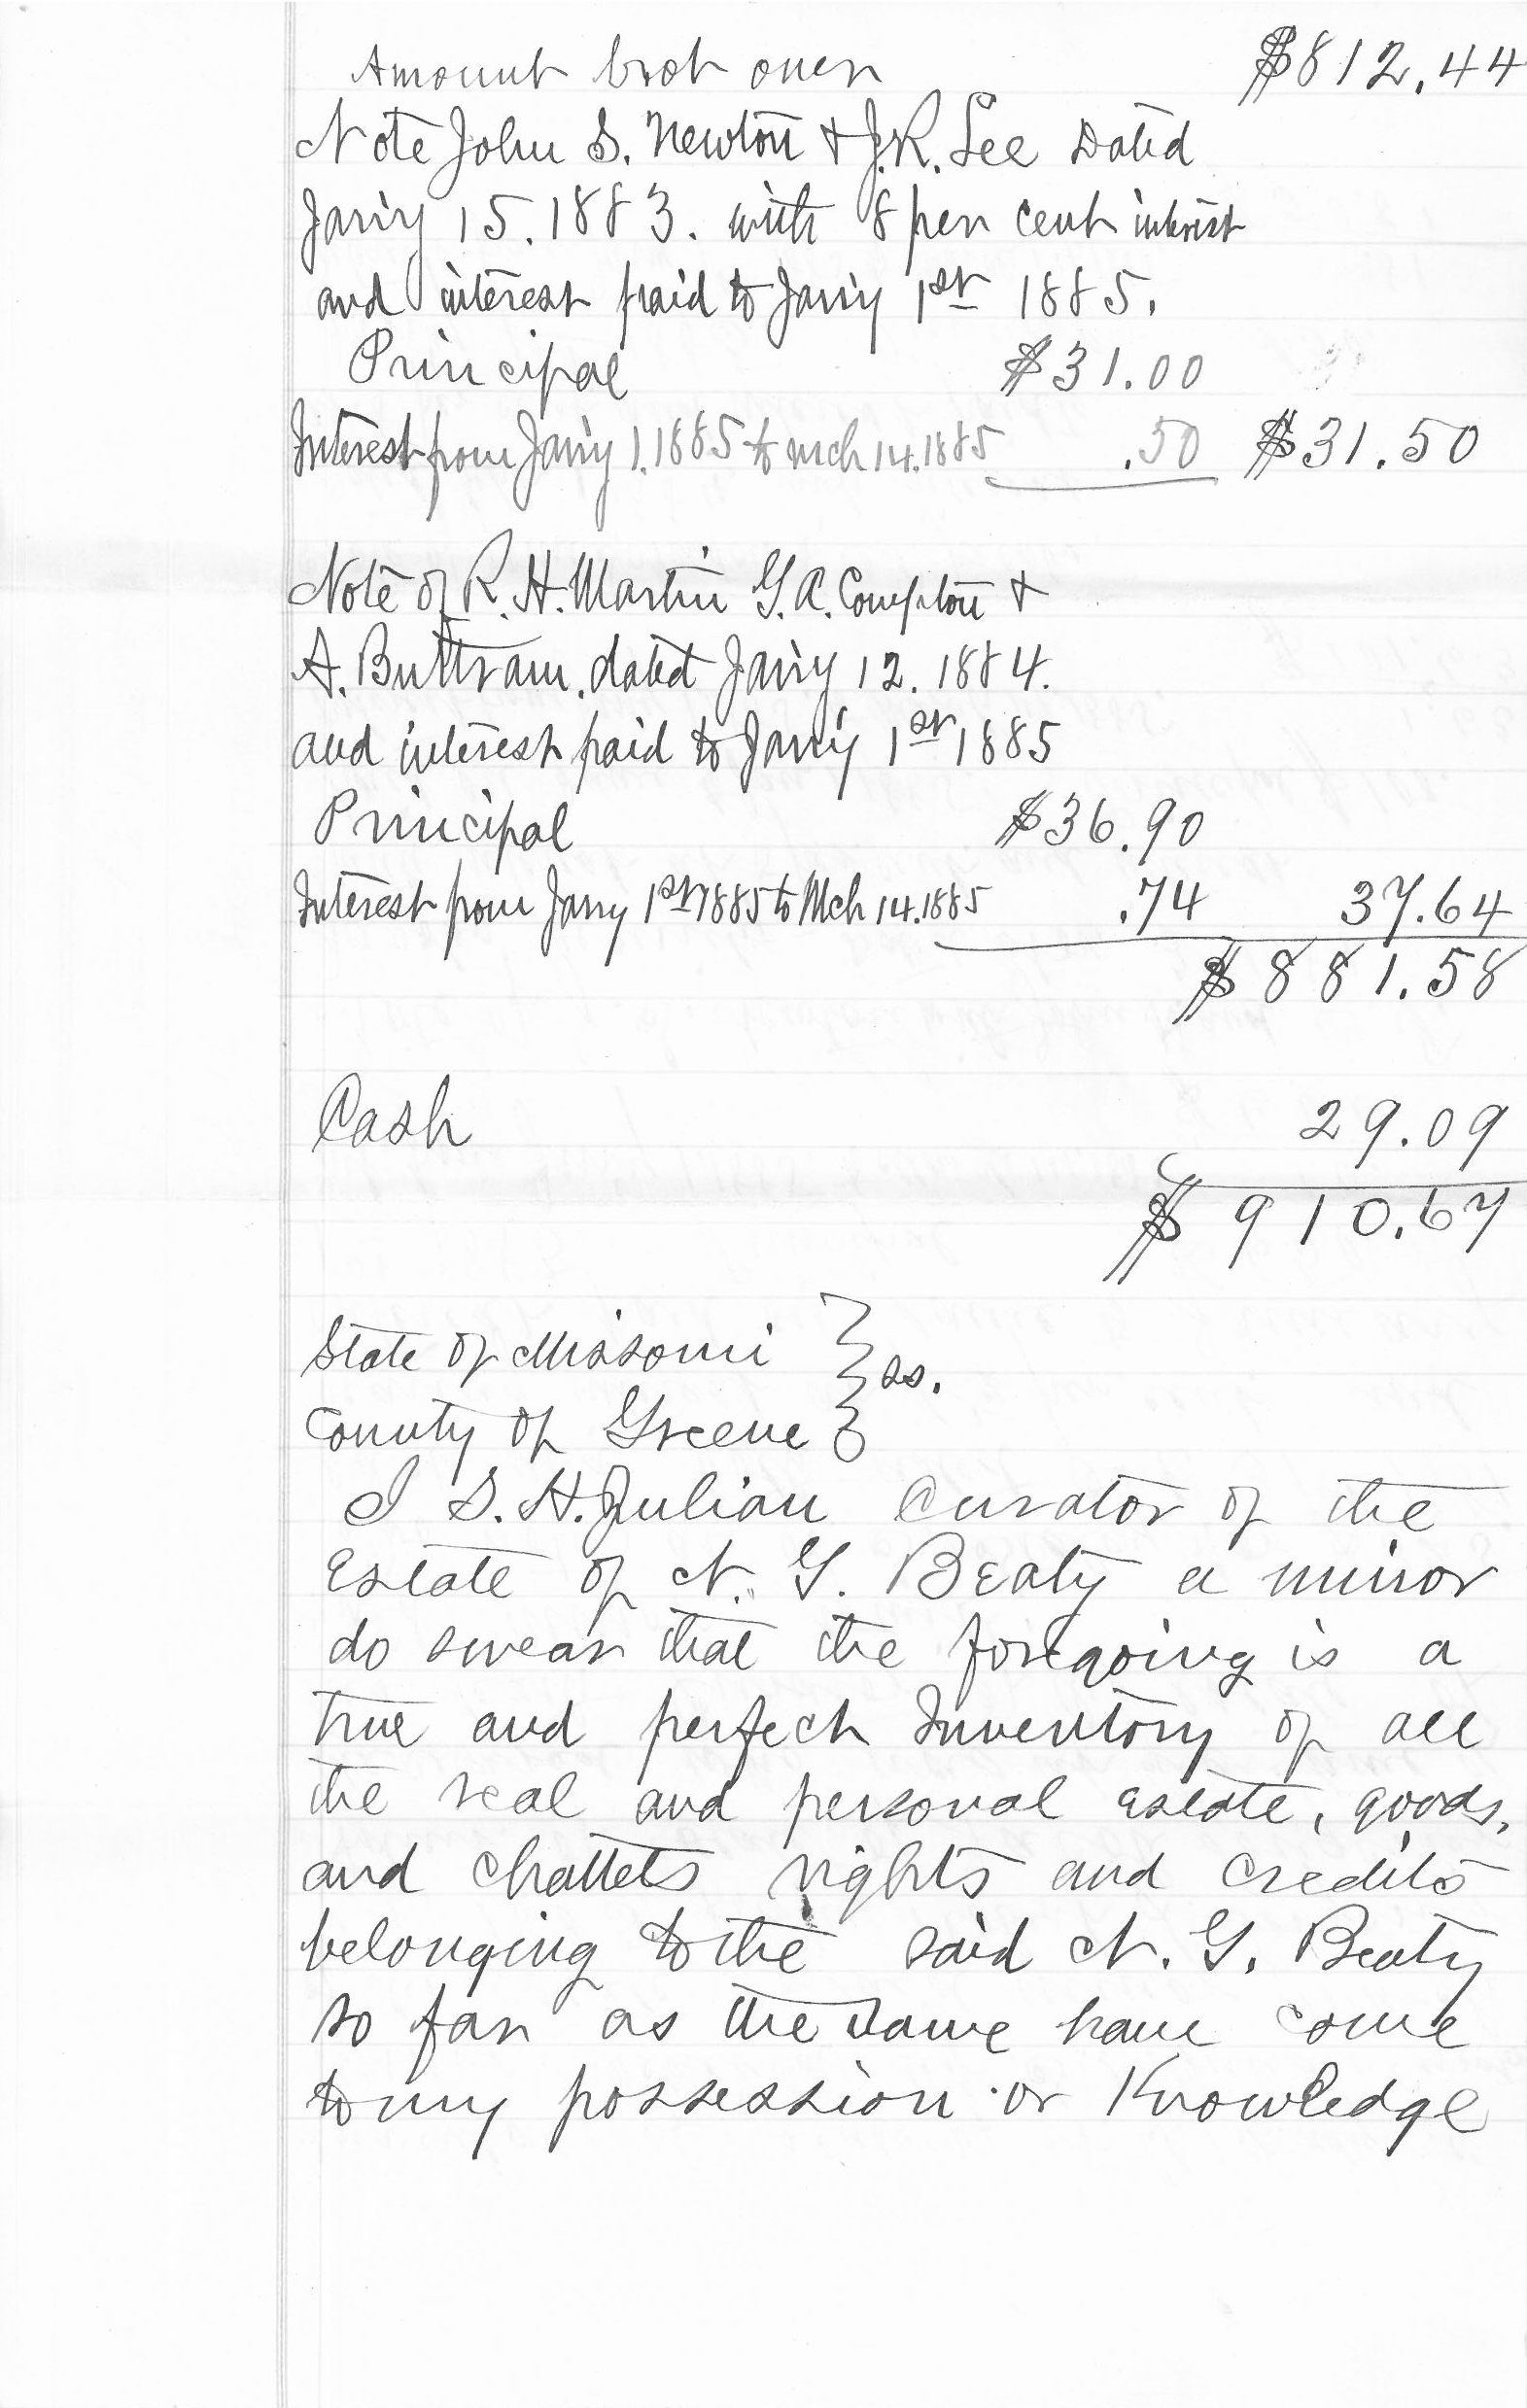 Amount brot over $812.44
Note John S. Newton & J.R. Lee Dated
Jany 15. 1883. with 8 per cent interest
and interest paid to Jany 1st 1885.
Principal $31.00
Interest from Jany 1. 1885 to Mch 14. 1885 .50 $31.50
Note of R. H. Martin G. A. Compton &
A. Buttram. dated Jany 12. 1884.
and interest paid to Jany 1st 1885
Principal $36.90
Interest from Jany 1st 1885 to Mch 14. 1885 .74 37.64
$881.58
Cash 29.09
$910.67
State of Missouri } ss.
County of Greene }
I S. H. Julian Curator of the
Estate of N. G. Beaty a minor
do swear that the foregoing is a
true and perfect Inventory of all
the real and personal estate, goods,
and chattets rights and credits
belonging to the said N. G. Beaty
so far as the same have come
to my possession or Knowledge